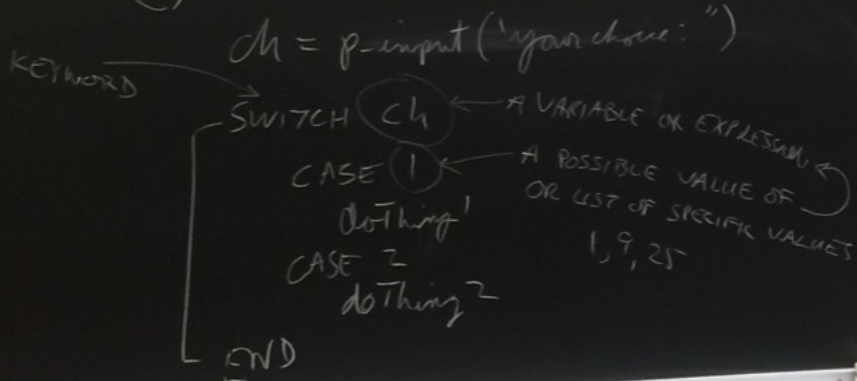 ch = p-input ("your choice:")
KEYWORD
SWITCH ch
A VARIABLE OR EXPRESSION
CASE 1
A POSSIBLE VALUE OF
OR LIST OF SPECIFIC VALUES
1, 9, 25
doThing1
CASE 2
doThing2
END